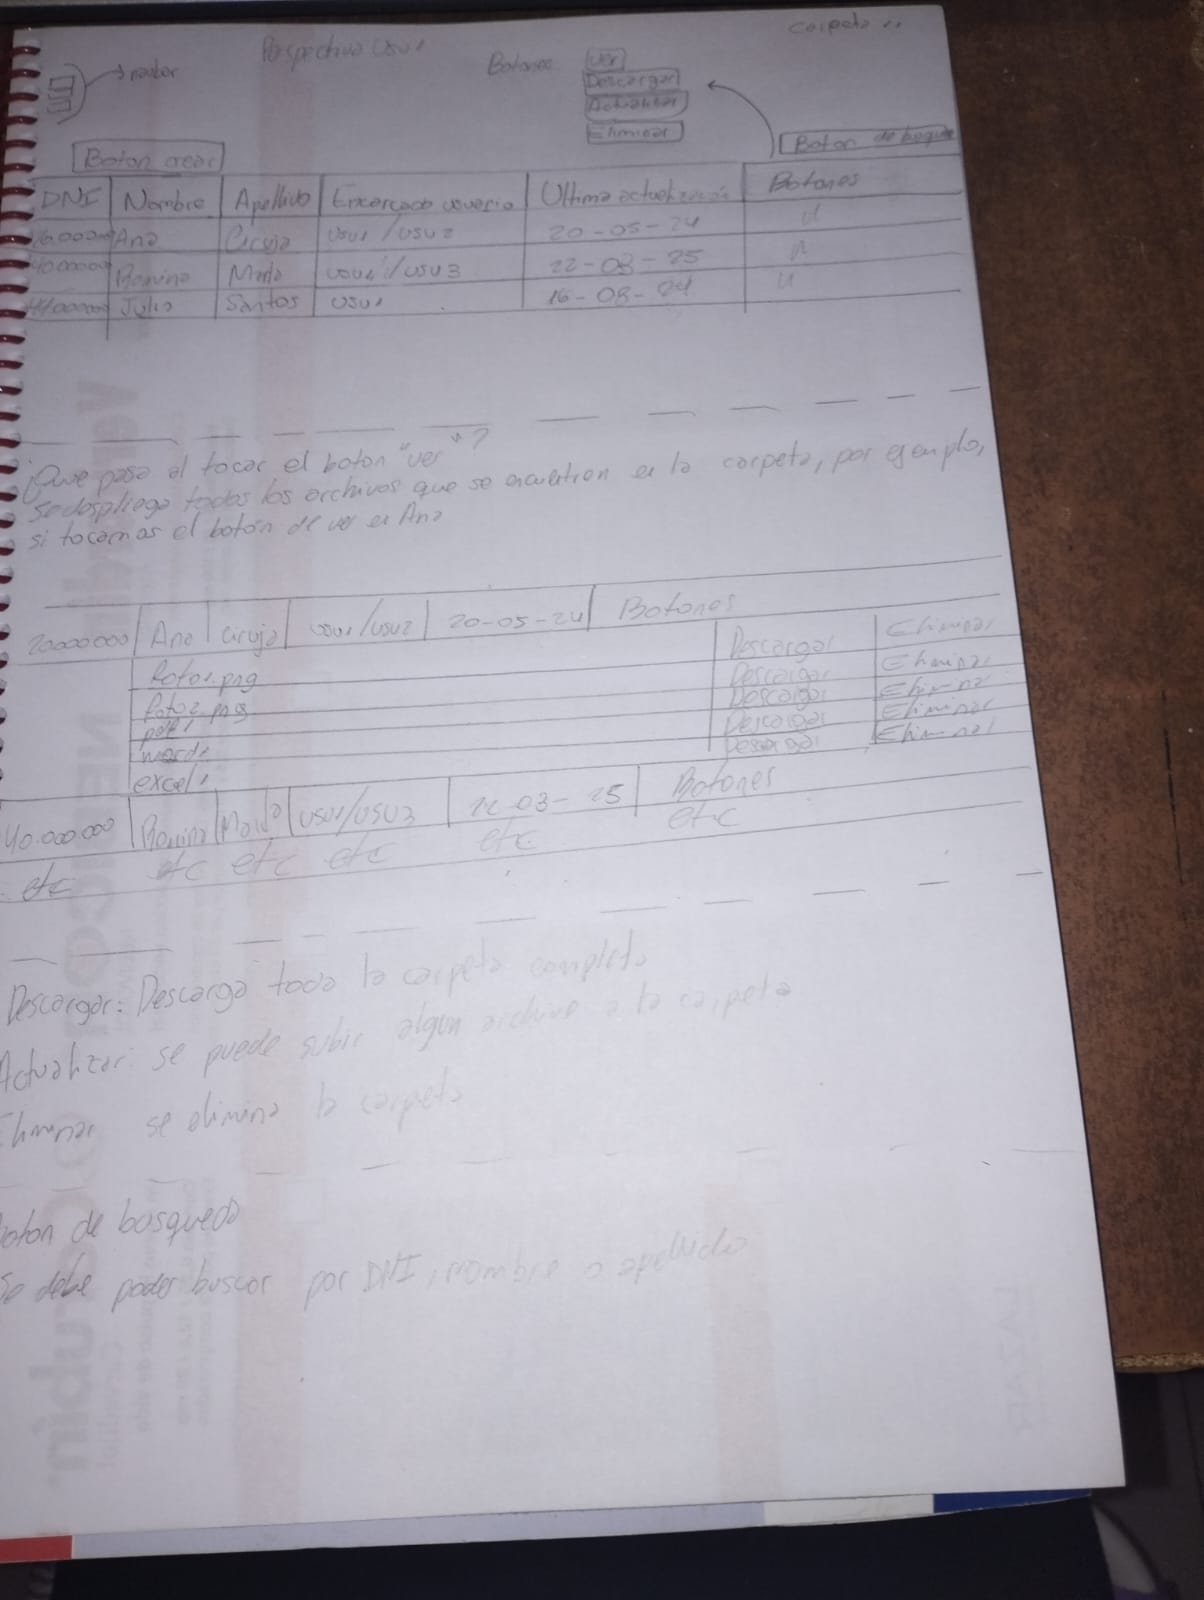 Carpeta ..
Perspectiva usu1
Botones
Ver
Descargar
Actualizar
Eliminar
Boton de
Boton crear
DNI Nombre Apellido Encargado usuario Ultima actualización Botones
Ana Ciruja usu1 / usu2 20-05-24
Romina usu1 / usu3 22-03-25
Julio Santos usu1 16-08-24
¿Que pasa al tocar el boton "ver"?
Se despliega todos los archivos que se encuentran en la carpeta, por ejemplo,
si tocamos el botón de ver en Ana
20000000 Ana Ciruja usu1/usu2 20-05-24 Botones
foto1.png Descargar Eliminar
foto2.png Descargar Eliminar
pdf1 Descargar Eliminar
word1 Descargar Eliminar
excel1 Descargar Eliminar
40.000.000 Romina usu1/usu3 22-03-25 Botones
etc etc etc etc etc etc
Descargar: Descarga toda la carpeta completa
Actualizar: se puede subir algun archivo a la carpeta
Eliminar se elimina la carpeta
Boton de busqueda
Se debe poder buscar por DNI, nombre o apellido